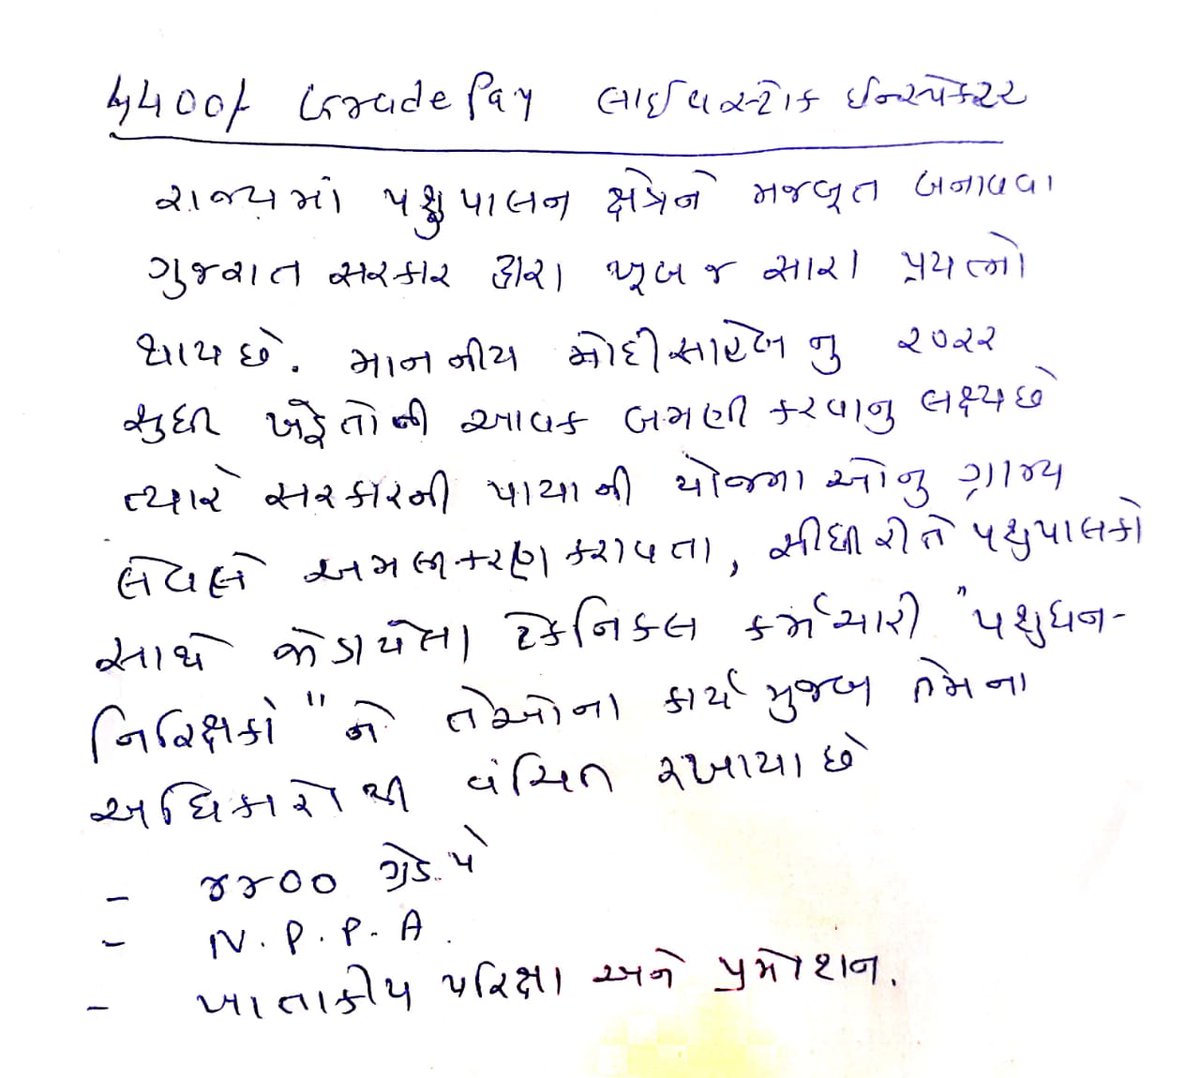 4400/- Grade Pay લાઈવસ્ટોક ઈન્સ્પેક્ટર
રાજ્યમાં પશુપાલન ક્ષેત્રને મજબૂત બનાવવા
ગુજરાત સરકાર દ્વારા ખૂબ જ સારા પ્રયત્નો
થાય છે. માનનીય મોદીસાહેબ નુ ૨૦૨૨
સુધી ખેડૂતોની આવક બમણી કરવાનુ લક્ષ્ય છે
ત્યારે સરકારની પાયાની યોજનાઓનુ ગ્રામ્ય
લેવલે અમલીકરણ કરાવતા, સીધી રીતે પશુપાલકો
સાથે જોડાયેલા ટેકનિકલ કર્મચારી "પશુધન-
નિરિક્ષકો" ને તેઓના કાર્ય મુજબ તેમના
અધિકારોથી વંચિત રખાયા છે
- ૪૪૦૦ ગ્રેડ પે
- N.P.P.A.
- ખાતાકીય પરિક્ષા અને પ્રમોશન.